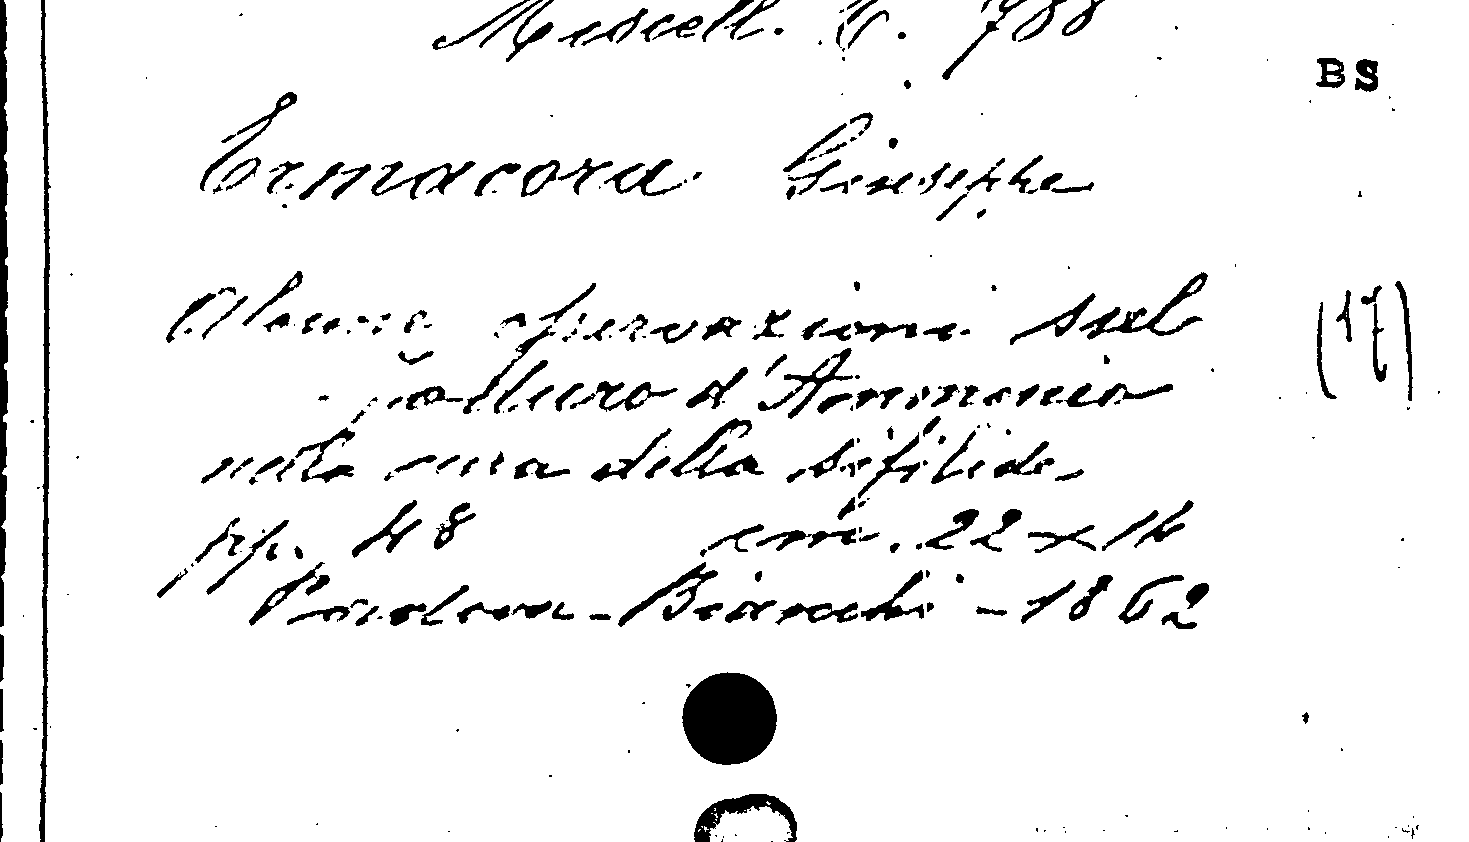 Miscell. C. 788
BS
Ermacora Giuseppe
Alcune osservazioni sul (17)
joduro d'Ammonio
nella cura della sifilide
pp. 48 cm. 22 x 14
Padova - Bianchi - 1862